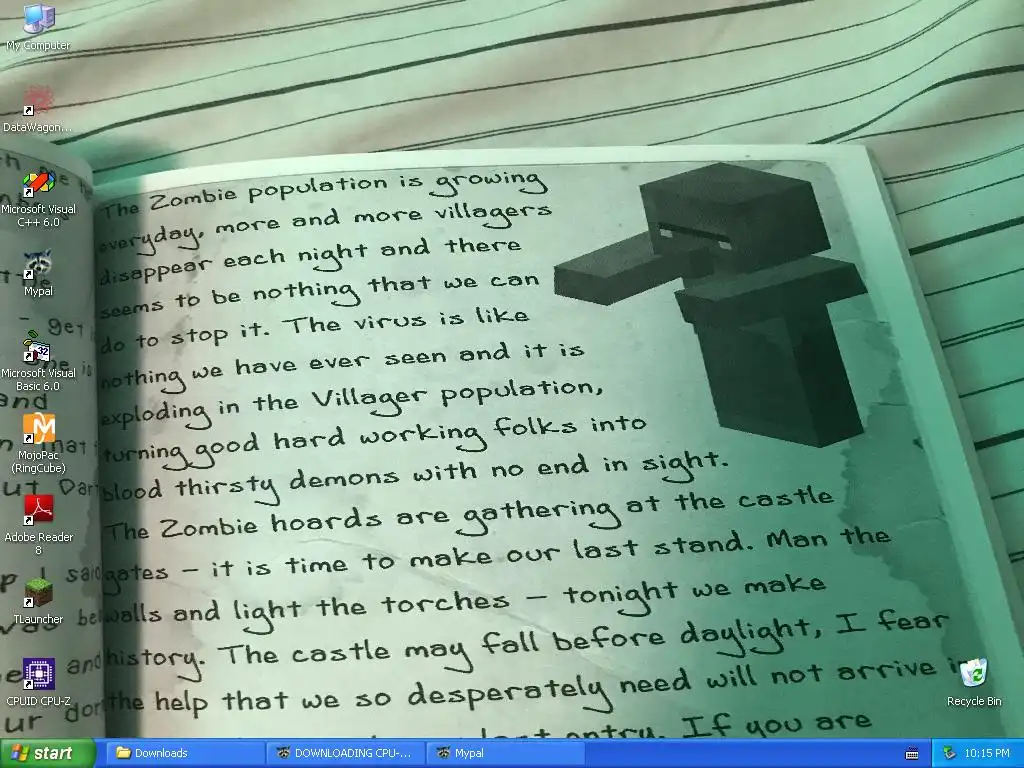 My Computer
DataWagon...
Microsoft Visual
C++ 6.0
Mypal
Microsoft Visual
Basic 6.0
MojoPac
(RingCube)
Adobe Reader
8
TLauncher
CPUID CPU-Z
The Zombie population is growing
everyday, more and more villagers
disappear each night and there
seems to be nothing that we can
do to stop it. The virus is like
nothing we have ever seen and it is
exploding in the Villager population,
turning good hard working folks into
blood thirsty demons with no end in sight.
The Zombie hoards are gathering at the castle
gates – it is time to make our last stand. Man the
walls and light the torches – tonight we make
history. The castle may fall before daylight, I fear
the help that we so desperately need will not arrive
entry. If you are
Recycle Bin
start
Downloads
DOWNLOADING CPU-...
Mypal
10:15 PM